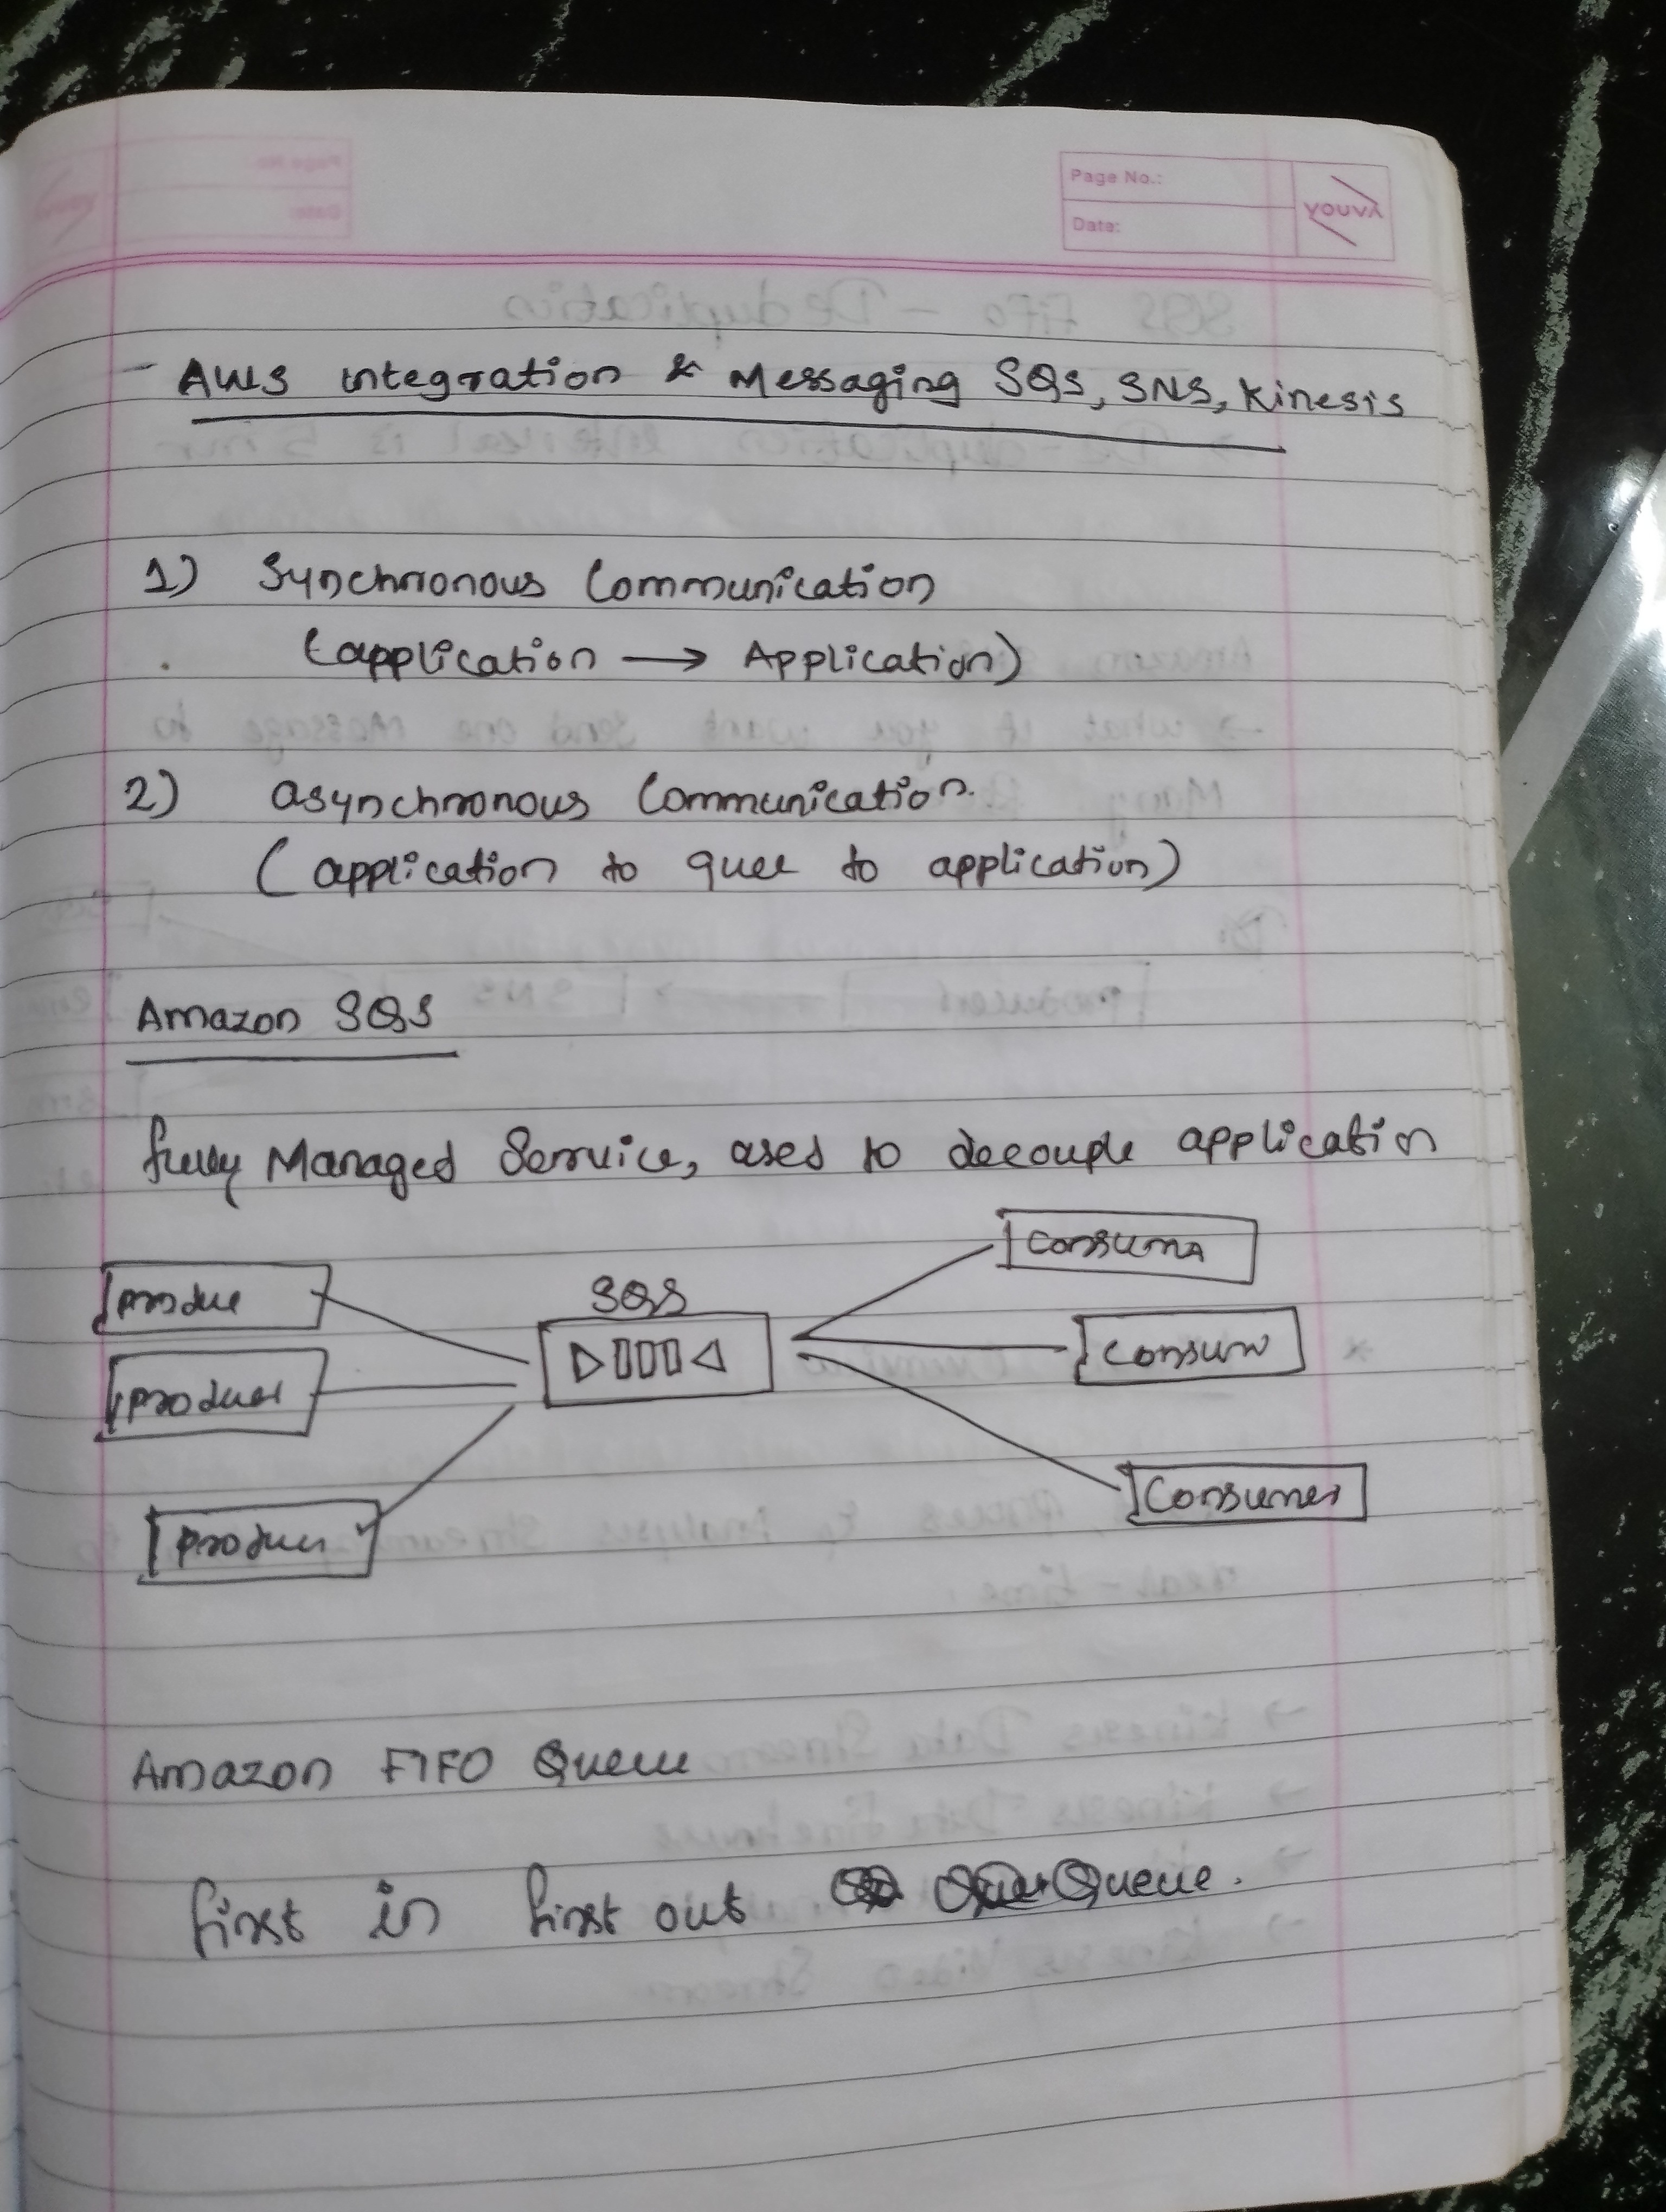 Page No.:
Date:
youva
- AWS integration & Messaging SQS, SNS, Kinesis
1) Synchronous Communication
(application → Application)
2) asynchronous Communication.
( application to quee to application)
Amazon SQS
fully Managed Service, used to decouple application
consumer
SQS
produe
consum
producer
Consumer
producer
Amazon FIFO Queue
first in first out Queue.